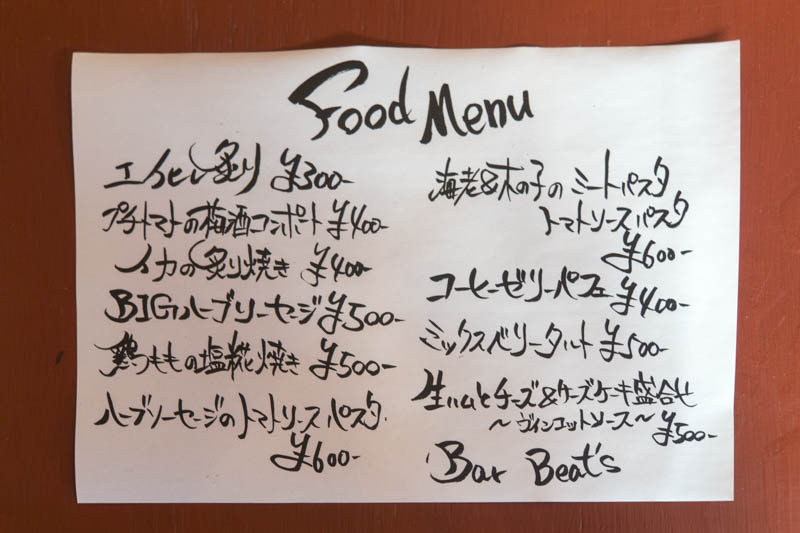 Food Menu
エイヒレ炙り ¥300-
プチトマトの梅酒コンポート ¥400-
イカの炙り焼き ¥400-
BIGハーブソーセージ ¥500-
鶏ももの塩糀焼き ¥500-
ハーブソーセージのトマトソースパスタ
¥600-
海老&木の子のミートパスタ
トマトソースパスタ
¥600-
コーヒーゼリーパフェ ¥400-
ミックスベリータルト ¥500-
生ハムとチーズ&チーズケーキ盛合せ
～ヴィンコットソース～ ¥500-
Bar Beat's